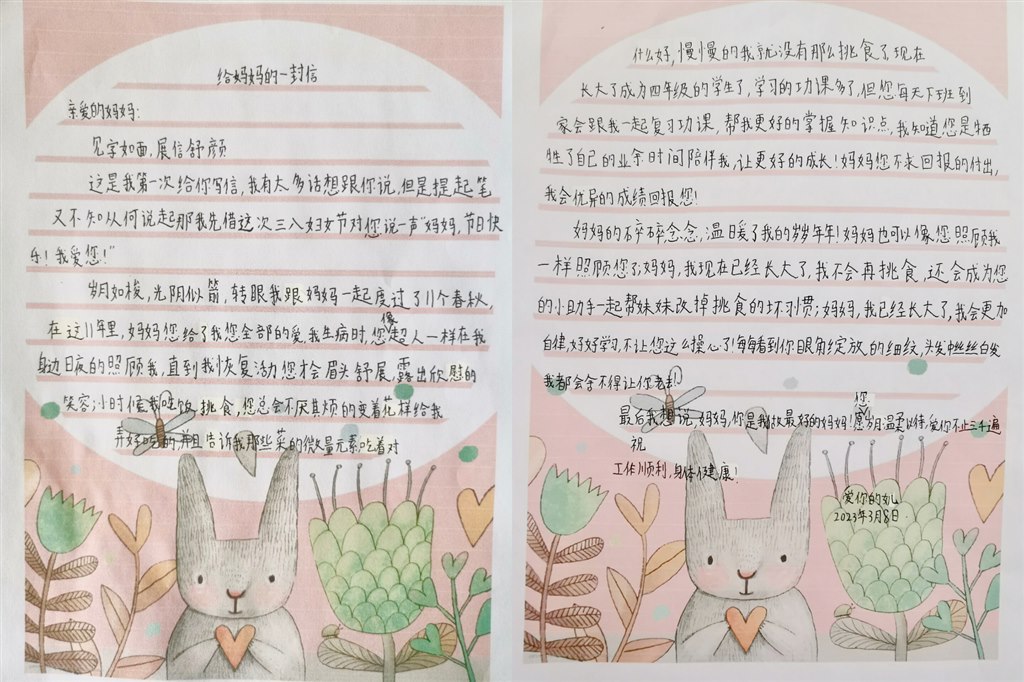 给妈妈的一封信
亲爱的妈妈:
见字如面,展信舒颜
这是我第一次给你写信,我有太多话想跟你说,但是提起笔
又不知从何说起那我先借这次三八妇女节对您说一声“妈妈,节日快
乐!我爱您!”
岁月如梭,光阴似箭,转眼我跟妈妈一起度过了11个春秋,
在这11年里,妈妈您给了我您全部的爱,我生病时,您像超人一样在我
身边日夜的照顾我,直到我恢复活力您才会眉头舒展,露出欣慰的
笑容;小时候我吃饭挑食,您总会不厌其烦的变着花样给我
弄好吃的,并且告诉我那些菜的微量元素,吃着对
什么好,慢慢的我就没有那么挑食了,现在
长大了成为四年级的学生了,学习的功课多了,但您每天下班到
家会跟我一起复习功课,帮我更好的掌握知识点,我知道您是牺
牲了自己的业余时间陪伴我,让更好的成长!妈妈您不求回报的付出,
我会优异的成绩回报您!
妈妈的碎碎念念,温暖了我的岁岁年年!妈妈也可以像您照顾我
一样照顾您了;妈妈,我现在已经长大了,我不会再挑食,还会成为您
的小助手一起帮妹妹改掉挑食的坏习惯;妈妈,我已经长大了,我会更加
自律,好好学习,不让您这么操心了!每每看到你眼角绽放的细纹,头发中丝丝白发
我都会舍不得让你老去!
最后我想说,妈妈,你是我故最好的妈妈!愿您岁月温柔以待,爱你不止三千遍
祝
工作顺利,身体健康!
爱你的女儿
2023年3月8日